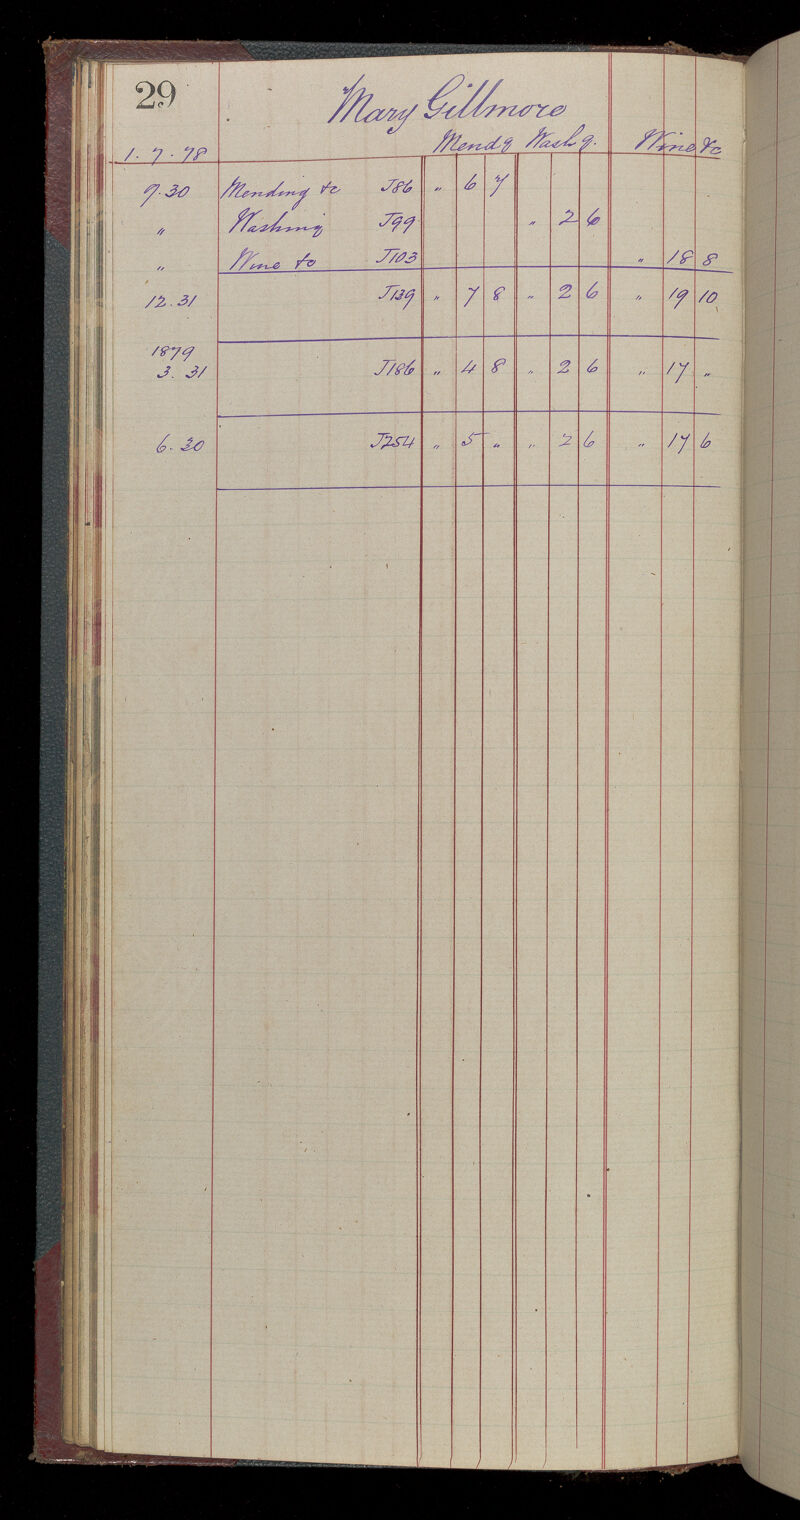 29
Mary Gillmore
1. 7. 78 Mendg Washg. Wine &c
9. 30 Mending &c J86 " 6 7
" Washing J99 " 2 6
" Wine &c J103 " 18 8
12. 31 J139 " 7 8 " 2 6 " 19 10
1879
3. 31 J186 " 4 8 " 2 6 " 17 "
6. 30 J254 " 5 " " 2 6 " 17 6